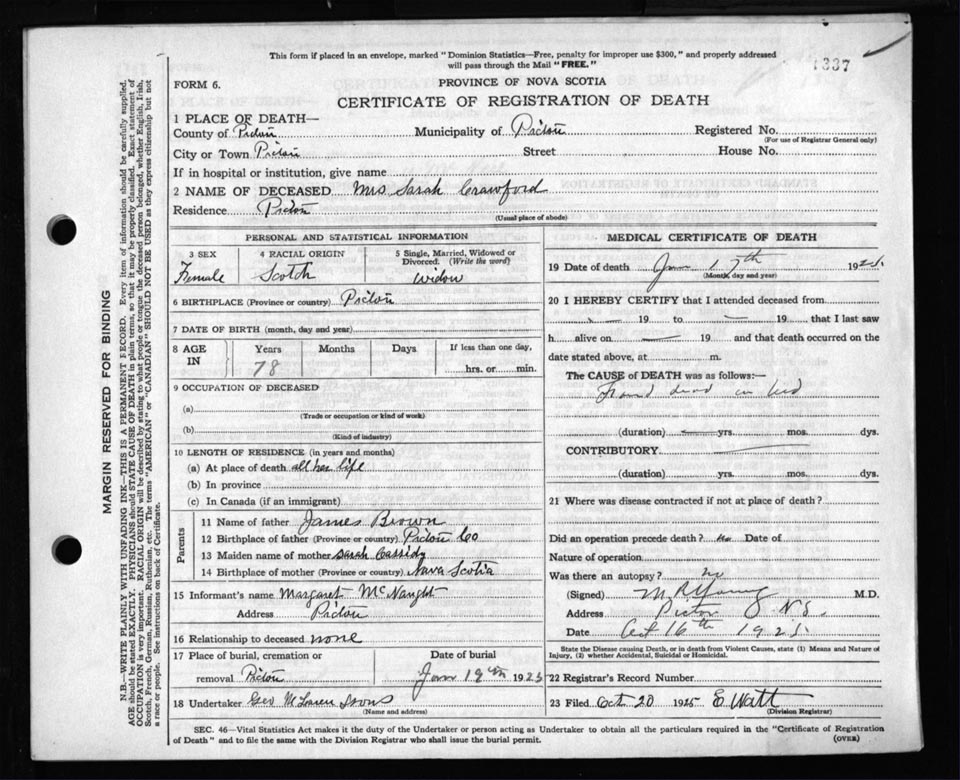 This form if placed in an envelope, marked "Dominion Statistics—Free, penalty for improper use $300," and properly addressed
will pass through the Mail "FREE."
1337
FORM 6.
PROVINCE OF NOVA SCOTIA
CERTIFICATE OF REGISTRATION OF DEATH
1 PLACE OF DEATH—
County of Pictou Municipality of Pictou Registered No.
(For use of Registrar General only)
City or Town Pictou Street House No.
If in hospital or institution, give name
2 NAME OF DECEASED Mrs Sarah Crawford
Residence Pictou
(Usual place of abode)
PERSONAL AND STATISTICAL INFORMATION
3 SEX 4 RACIAL ORIGIN 5 Single, Married, Widowed or
Divorced. (Write the word)
Female Scotch Widow
6 BIRTHPLACE (Province or country) Pictou
7 DATE OF BIRTH (month, day and year)
8 AGE IN Years Months Days If less than one day,
78 hrs. or min.
9 OCCUPATION OF DECEASED
(a)
(Trade or occupation or kind of work)
(b)
(Kind of industry)
10 LENGTH OF RESIDENCE (in years and months)
(a) At place of death all her life
(b) In province
(c) In Canada (if an immigrant)
Parents
11 Name of father James Brown
12 Birthplace of father (Province or country) Pictou Co
13 Maiden name of mother Sarah Cassidy
14 Birthplace of mother (Province or country) Nova Scotia
15 Informant's name Margaret McNaught
Address Pictou
16 Relationship to deceased none
17 Place of burial, cremation or Date of burial
removal Pictou Jan 19th 1925
18 Undertaker Geo McLaren Sons
(Name and address)
MEDICAL CERTIFICATE OF DEATH
19 Date of death Jan 17th 1925
(Month, day and year)
20 I HEREBY CERTIFY that I attended deceased from
19 to 19 that I last saw
h alive on 19 and that death occurred on the
date stated above, at m.
The CAUSE of DEATH was as follows:—
Found dead in bed
(duration) yrs. mos. dys.
CONTRIBUTORY
(duration) yrs. mos. dys.
21 Where was disease contracted if not at place of death?
Did an operation precede death? no Date of
Nature of operation
Was there an autopsy? no
(Signed) M R Young M.D.
Address Pictou N.S.
Date Oct 16th 1925
State the Disease causing Death, or in death from Violent Causes, state (1) Means and Nature of
Injury, (2) whether Accidental, Suicidal or Homicidal.
22 Registrar's Record Number
23 Filed Oct 20 1925 E Watt
(Division Registrar)
SEC. 46—Vital Statistics Act makes it the duty of the Undertaker or person acting as Undertaker to obtain all the particulars required in the "Certificate of Registration
of Death" and to file the same with the Division Registrar who shall issue the burial permit. (OVER)
MARGIN RESERVED FOR BINDING
N.B.—WRITE PLAINLY WITH UNFADING INK—THIS IS A PERMANENT RECORD. Every item of information should be carefully supplied.
AGE should be stated EXACTLY. PHYSICIANS should STATE CAUSE OF DEATH in plain terms, so that it may be properly classified. Exact statement of
OCCUPATION is very important. RACIAL ORIGIN will be described by stating to what people or tongue the deceased person belonged, whether English, Irish,
Scotch, French, German, Russian, Ruthenian, etc. The terms "AMERICAN" or "CANADIAN" SHOULD NOT BE USED as they express citizenship but not
a race or people. See instructions on back of Certificate.